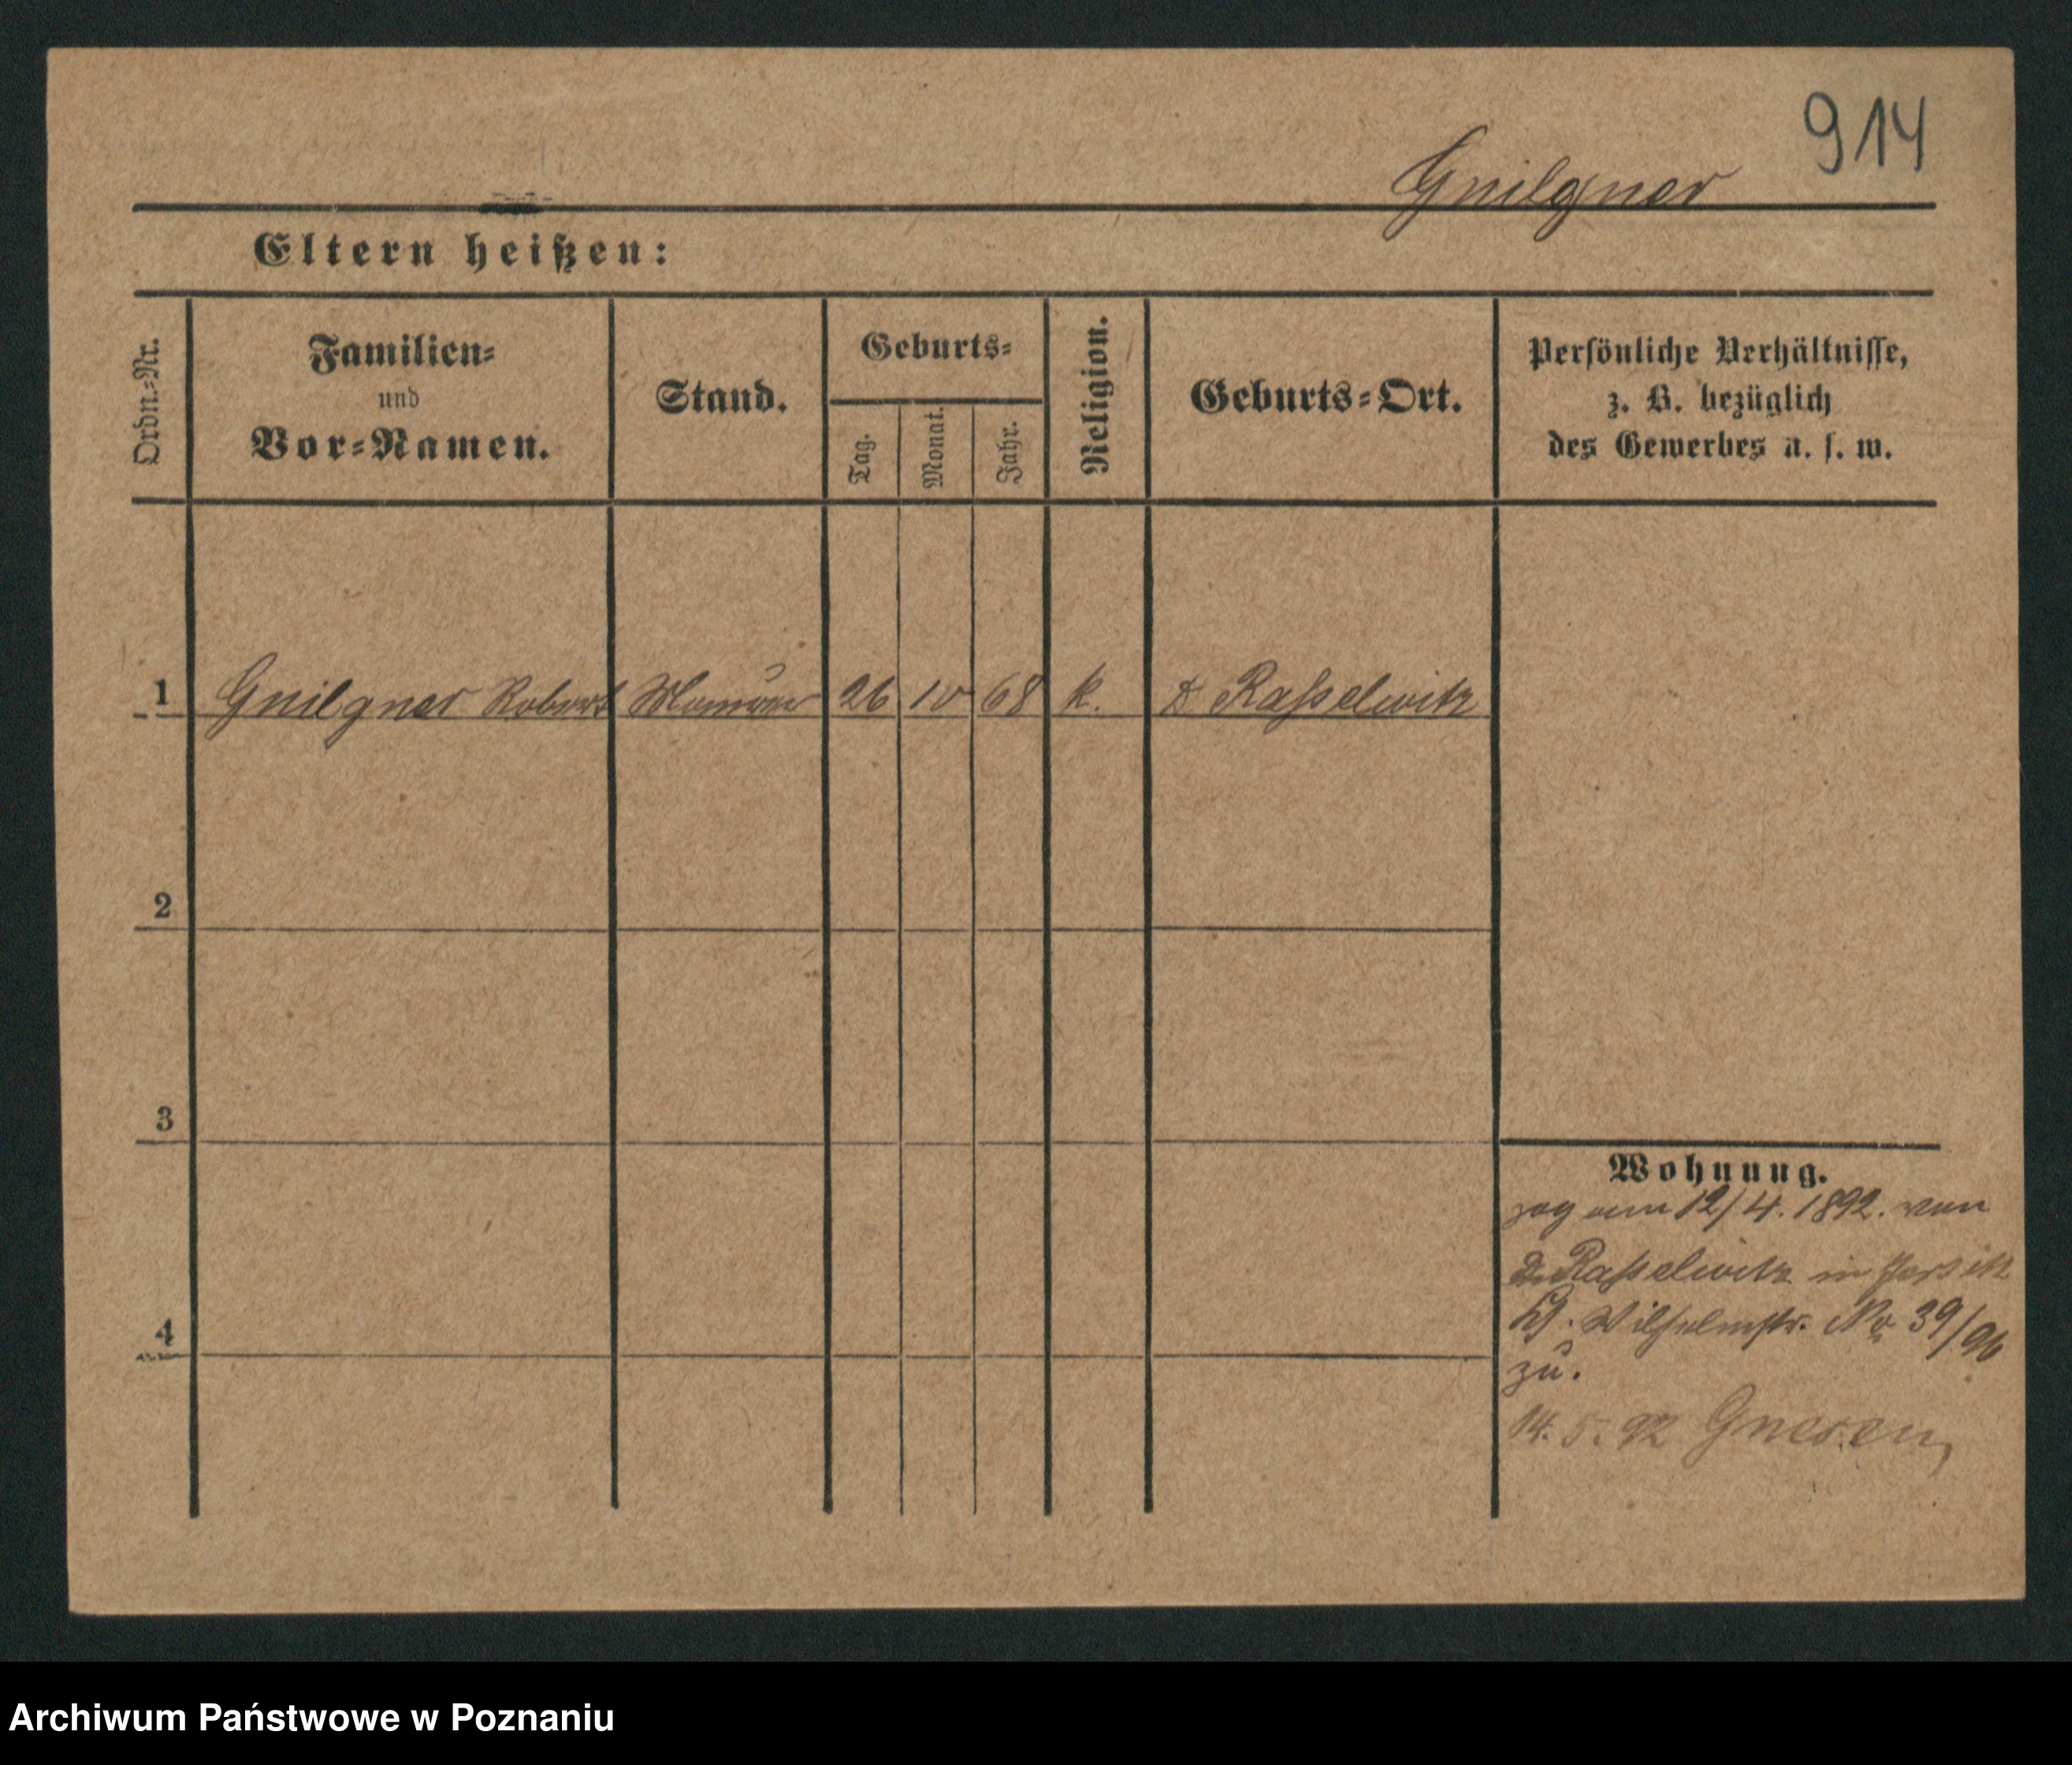 914
Gnilgner
Eltern heißen:
Ordn.-Nr.
Familien-
und
Vor-Namen.
Stand.
Geburts-
Tag.
Monat.
Jahr.
Religion.
Geburts-Ort.
Persönliche Verhältnisse,
z. B. bezüglich
des Gewerbes u. s. w.
1 Gnilgner Robert 26 10 68 k. D Raßelwitz
2
3
4
Wohnung.
zog am 12/4. 1892. von
D. Raßelwitz in Jersitz
Wilhelmstr. No 39/96
zu.
14. 5. 92 Gnesen
Archiwum Państwowe w Poznaniu